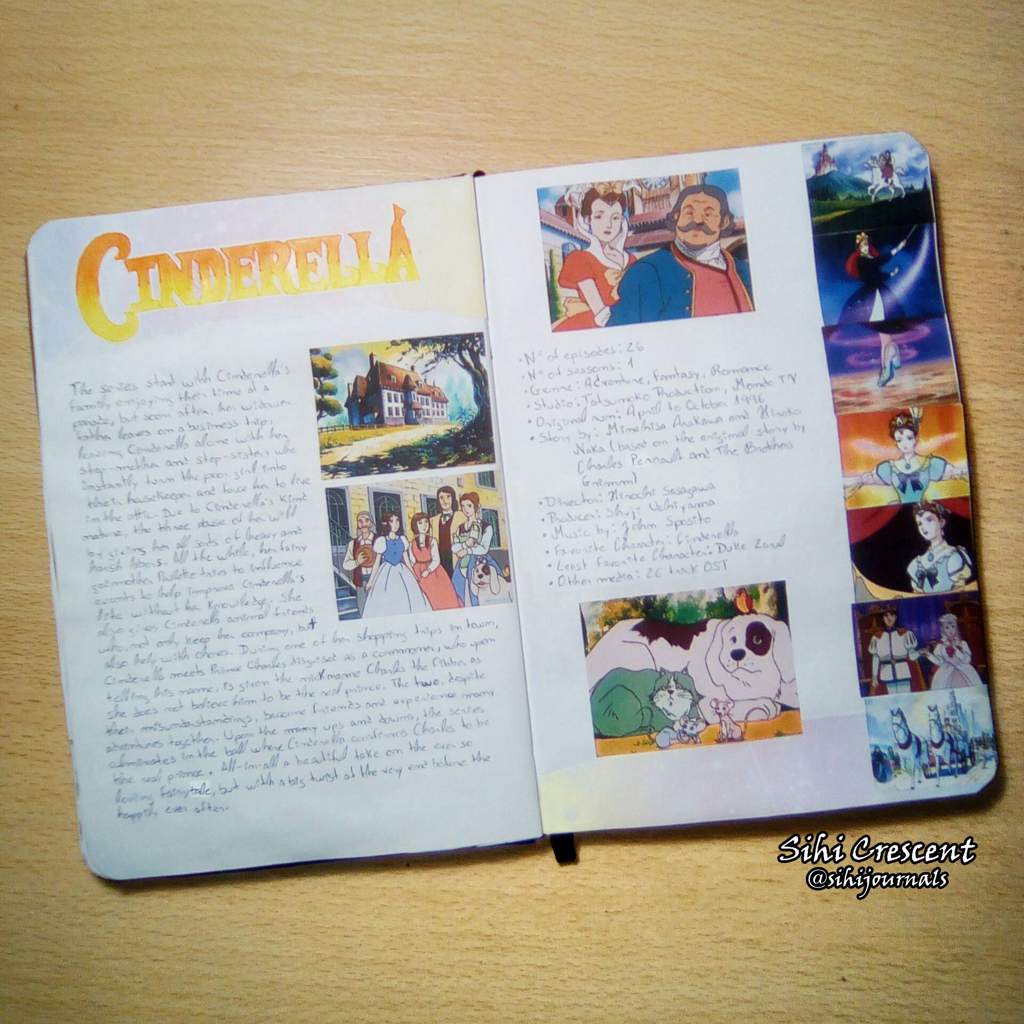 CINDERELLA
The series start with Cinderella's
family enjoying their time at a
but soon after, her widower
father leaves on a business trip,
leaving Cinderella alone with her
step-mother and step-sisters who
instantly turn the poor girl into
their housekeeper and force her to live
in the attic. Due to Cinderella's kind
nature, the three abuse of her will
by giving her all sorts of heavy and
harsh labors. All the while, her fairy
godmother Paulette tries to influence
events to help improve Cinderella's
life without her knowledge. She
also gives Cinderella animal friends
who not only keep her company, but
also help with chores. During one of her shopping trips in town,
Cinderella meets Prince Charles disguised as a commoner, who upon
telling his name, is given the nickname Charles the Fibber, as
she does not believe him to be the real prince. The two, despite
their misunderstandings, become friends and experience many
adventures together. Upon the many ups and downs, the series
culminates in the ball where Cinderella confirms Charles to be
the real prince. All-in-all a beautiful take on the
fairytale, but with a big twist at the very end before the
happily ever after.
• Nº of episodes: 26
• Nº of seasons: 1
• Genre: Adventure, Fantasy, Romance
• Studio: Tatsunoko Production, Mondo TV
• Original run: April to October 1996
• Story by: Mimehisa Arakawa and Hiroko
Naka (based on the original story by
Charles Perrault and The Brothers
Grimm)
• Director: Hiroshi Sasagawa
• Producer: Shuji Uchiyama
• Music by: John Sposito
• Favorite Character: Cinderella
• Least Favorite Character: Duke Zaral
• Other media: 26 track OST
Sihi Crescent
@sihijournals